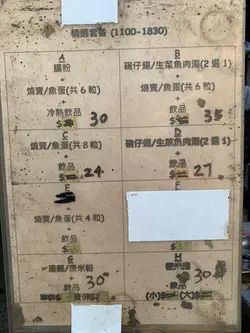 精選套餐 (1100-1830)
A
腸粉
+
燒賣/魚蛋(共 6 粒)
+
冷熱飲品
$ 30
B
碗仔翅/生菜魚肉湯(2 選 1)
+
燒賣/魚蛋(共 6 粒)
+
飲品
$ 35
C
燒賣/魚蛋(共 8 粒)
+
飲品
$ 24
D
碗仔翅/生菜魚肉湯(2 選 1)
+
飲品
$ 27
E
燒賣/魚蛋(共 4 粒)
+
飲品
$
F
G
+
飲品
30
H
+
飲品
30
(小) (大)